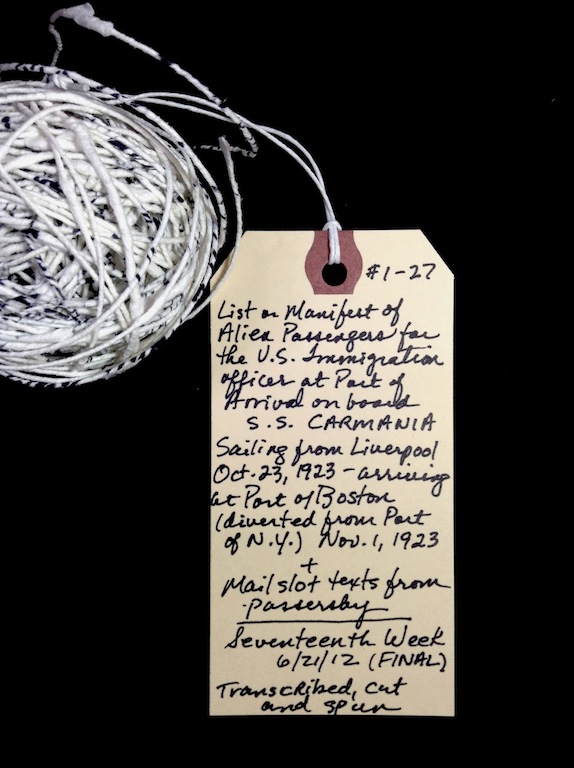 #1-27
List or Manifest of
Alien Passengers for
the U.S. Immigration
officer at Port of
Arrival on board
S.S. CARMANIA
Sailing from Liverpool
Oct. 23, 1923 - arriving
at Port of Boston
(diverted from Port
of N.Y.) Nov. 1, 1923
+
Mail slot texts from
passersby
Seventeenth Week
6/21/12 (FINAL)
Transcribed, cut
and spun